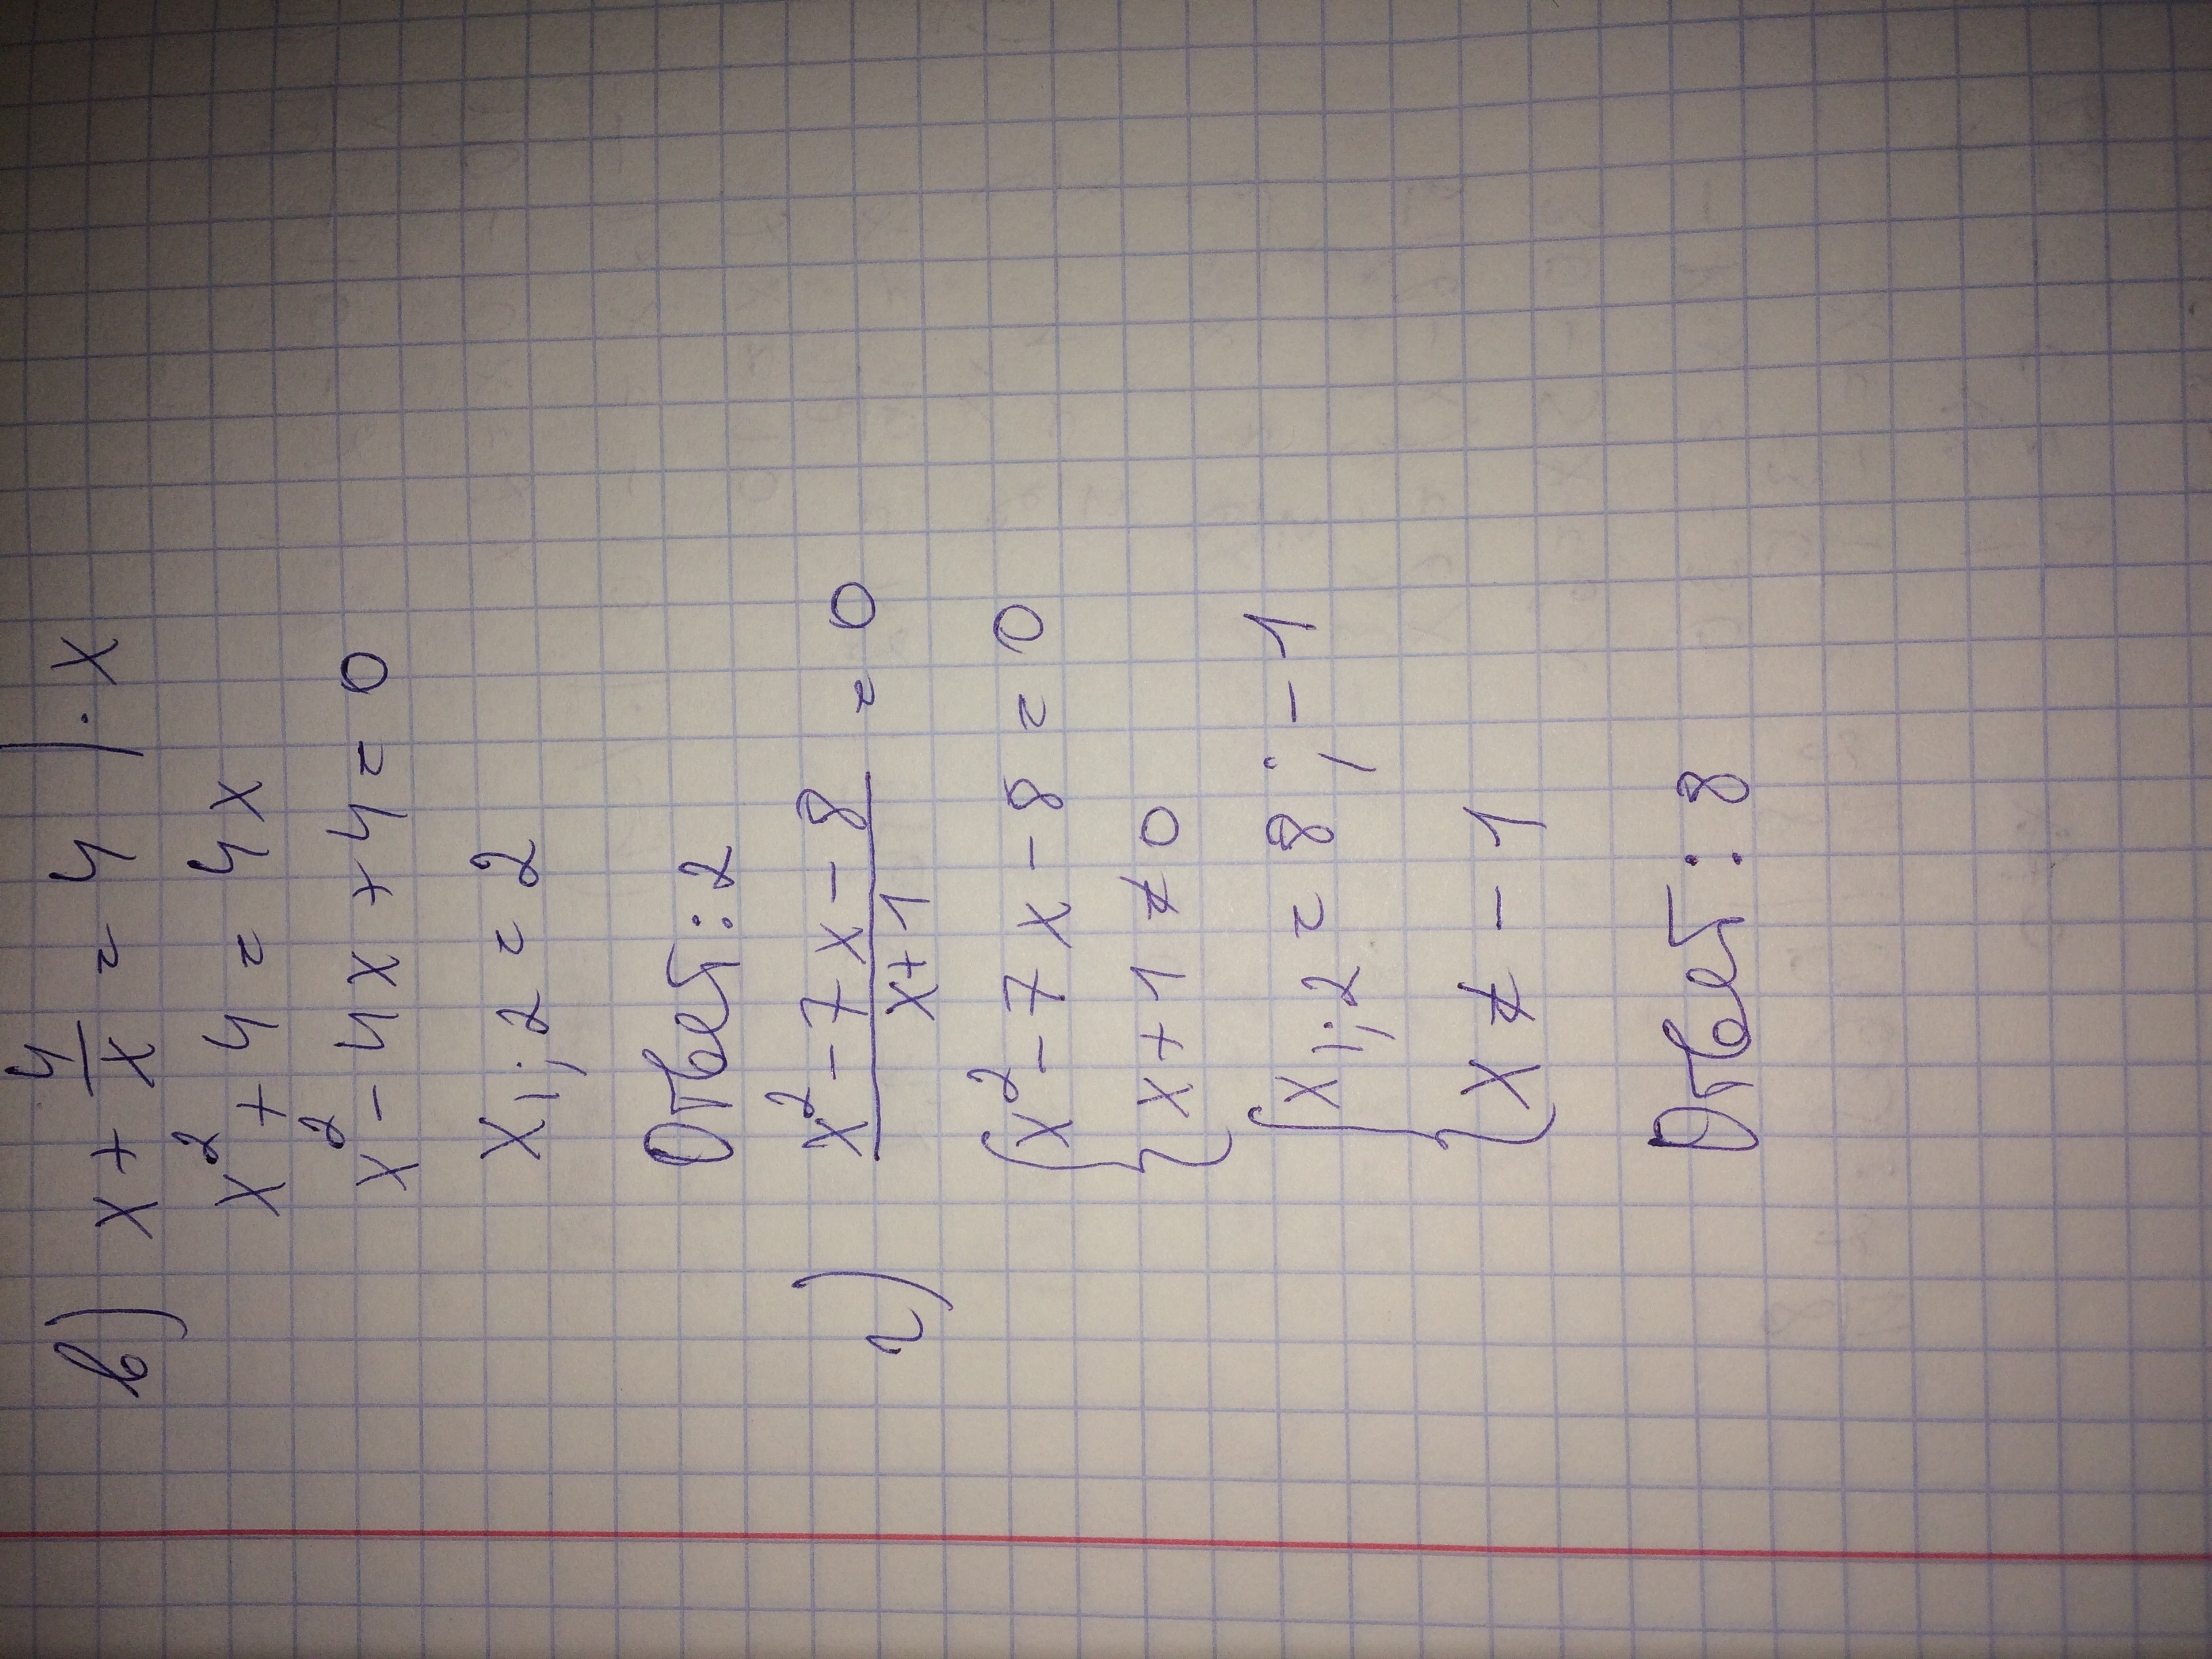 в) x + 4/x = 4 | · x
x² + 4 = 4x
x² - 4x + 4 = 0
x₁;₂ = 2
Ответ: 2
г) (x² - 7x - 8)/(x + 1) = 0
{ x² - 7x - 8 = 0
x + 1 ≠ 0
{ x₁;₂ = 8; -1
x ≠ -1
Ответ: 8